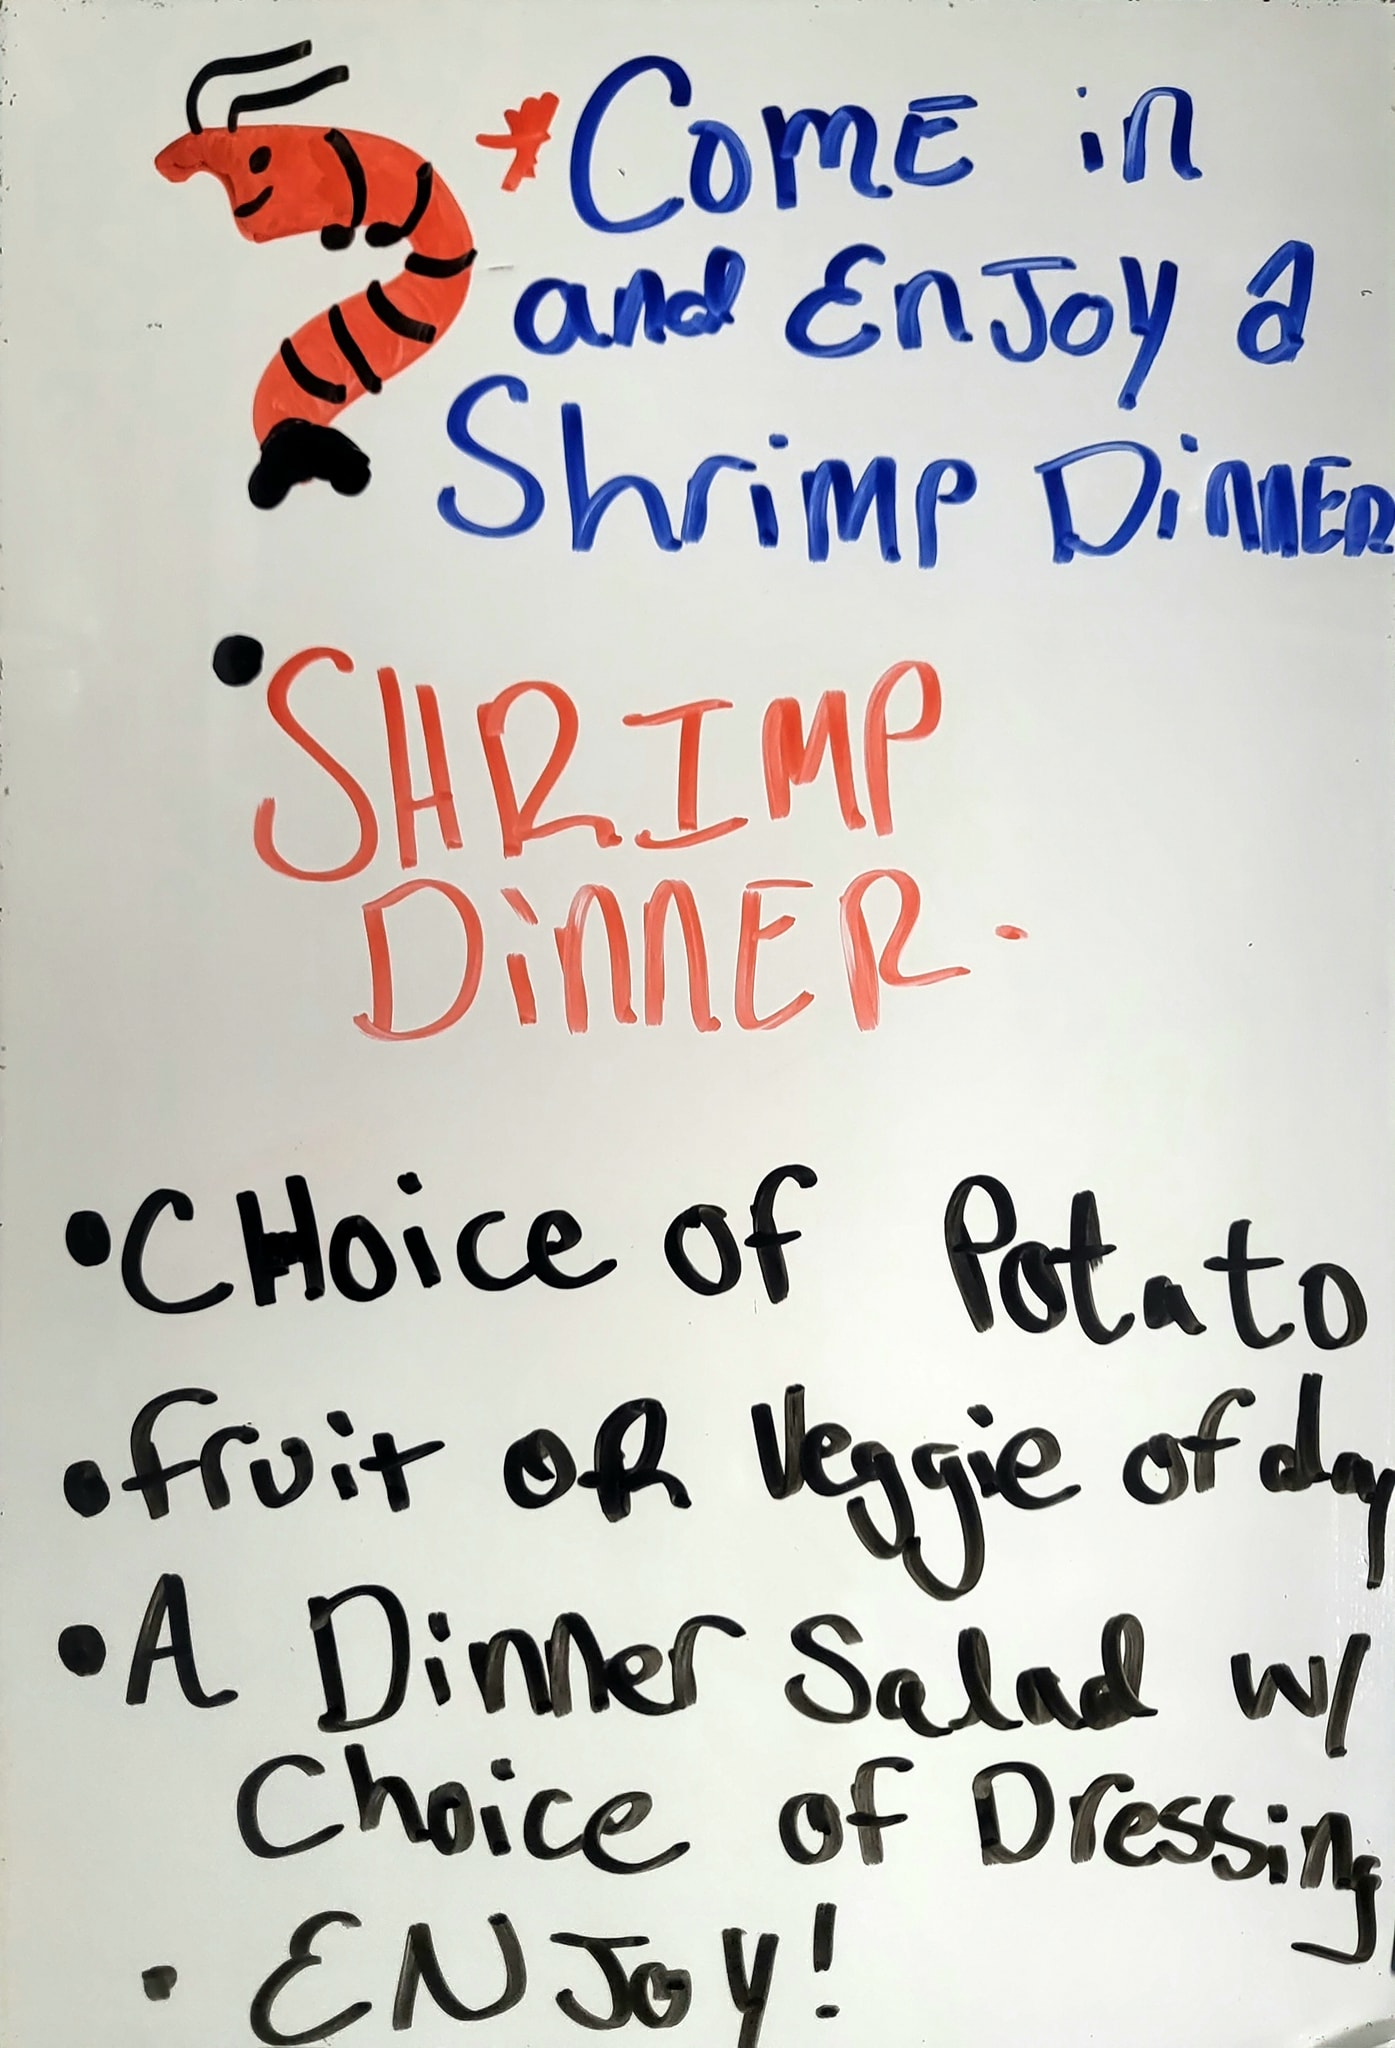 * Come in
and Enjoy a
Shrimp Dinner
• SHRIMP
Dinner.
• CHoice of Potato
• fruit or Veggie of day
• A Dinner Salad w/
Choice of Dressing
• ENJoy!